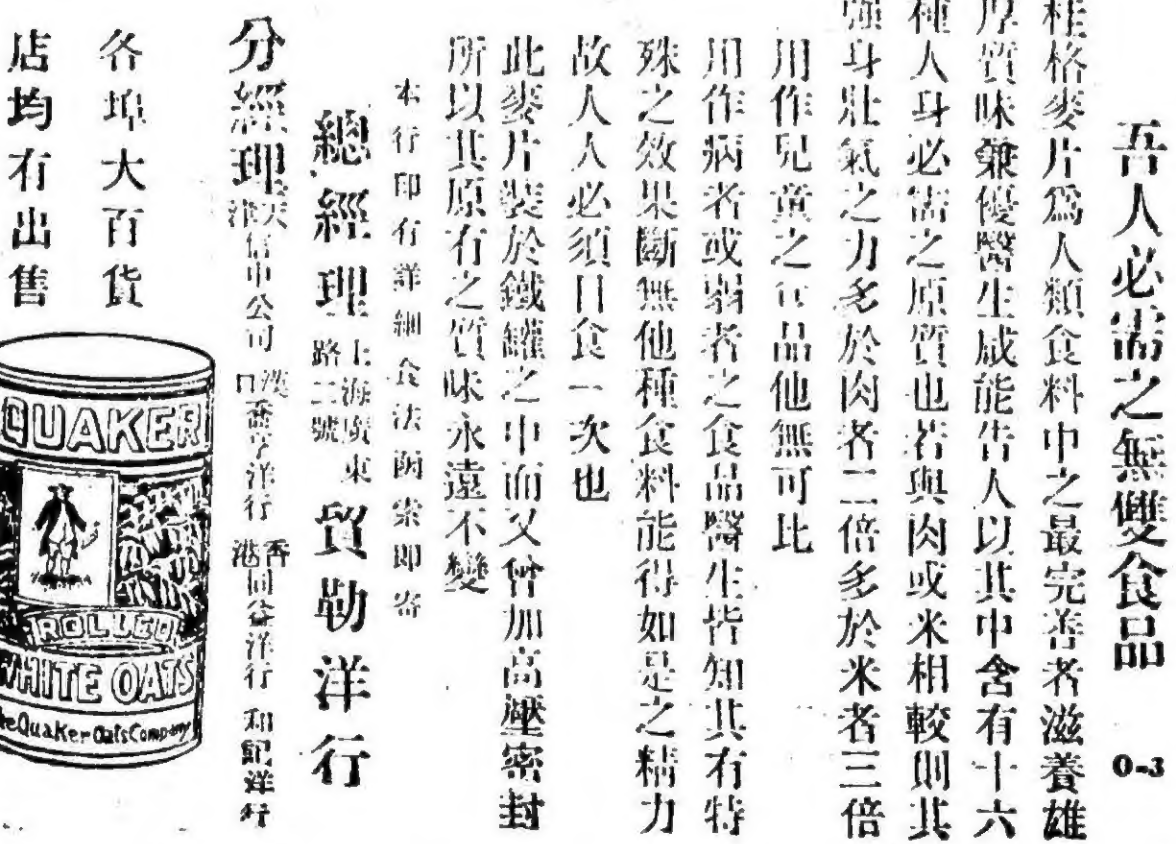 吾人必需之無雙食品 O-3
桂格麥片爲人類食料中之最完善者滋養雄
厚質味兼優醫生咸能告人以其中含有十六
種人身必需之原質也若與肉或米相較則其
強身壯氣之力多於肉者二倍多於米者三倍
用作兒童之食品他無可比
用作病者或弱者之食品醫生皆知其有特
殊之效果斷無他種食料能得如是之精力
故人人必須日食一次也
此麥片裝於鐵罐之中而又曾加高壓密封
所以其原有之質味永遠不變
本行印有詳細食法函索即寄
總經理 上海廣東路二號 貿勒洋行
分經理 天津信中公司 漢口 洋行 香港同益洋行 和記洋行
各埠大百貨
店均有出售
QUAKER
ROLLED
WHITE OATS
The Quaker Oats Company